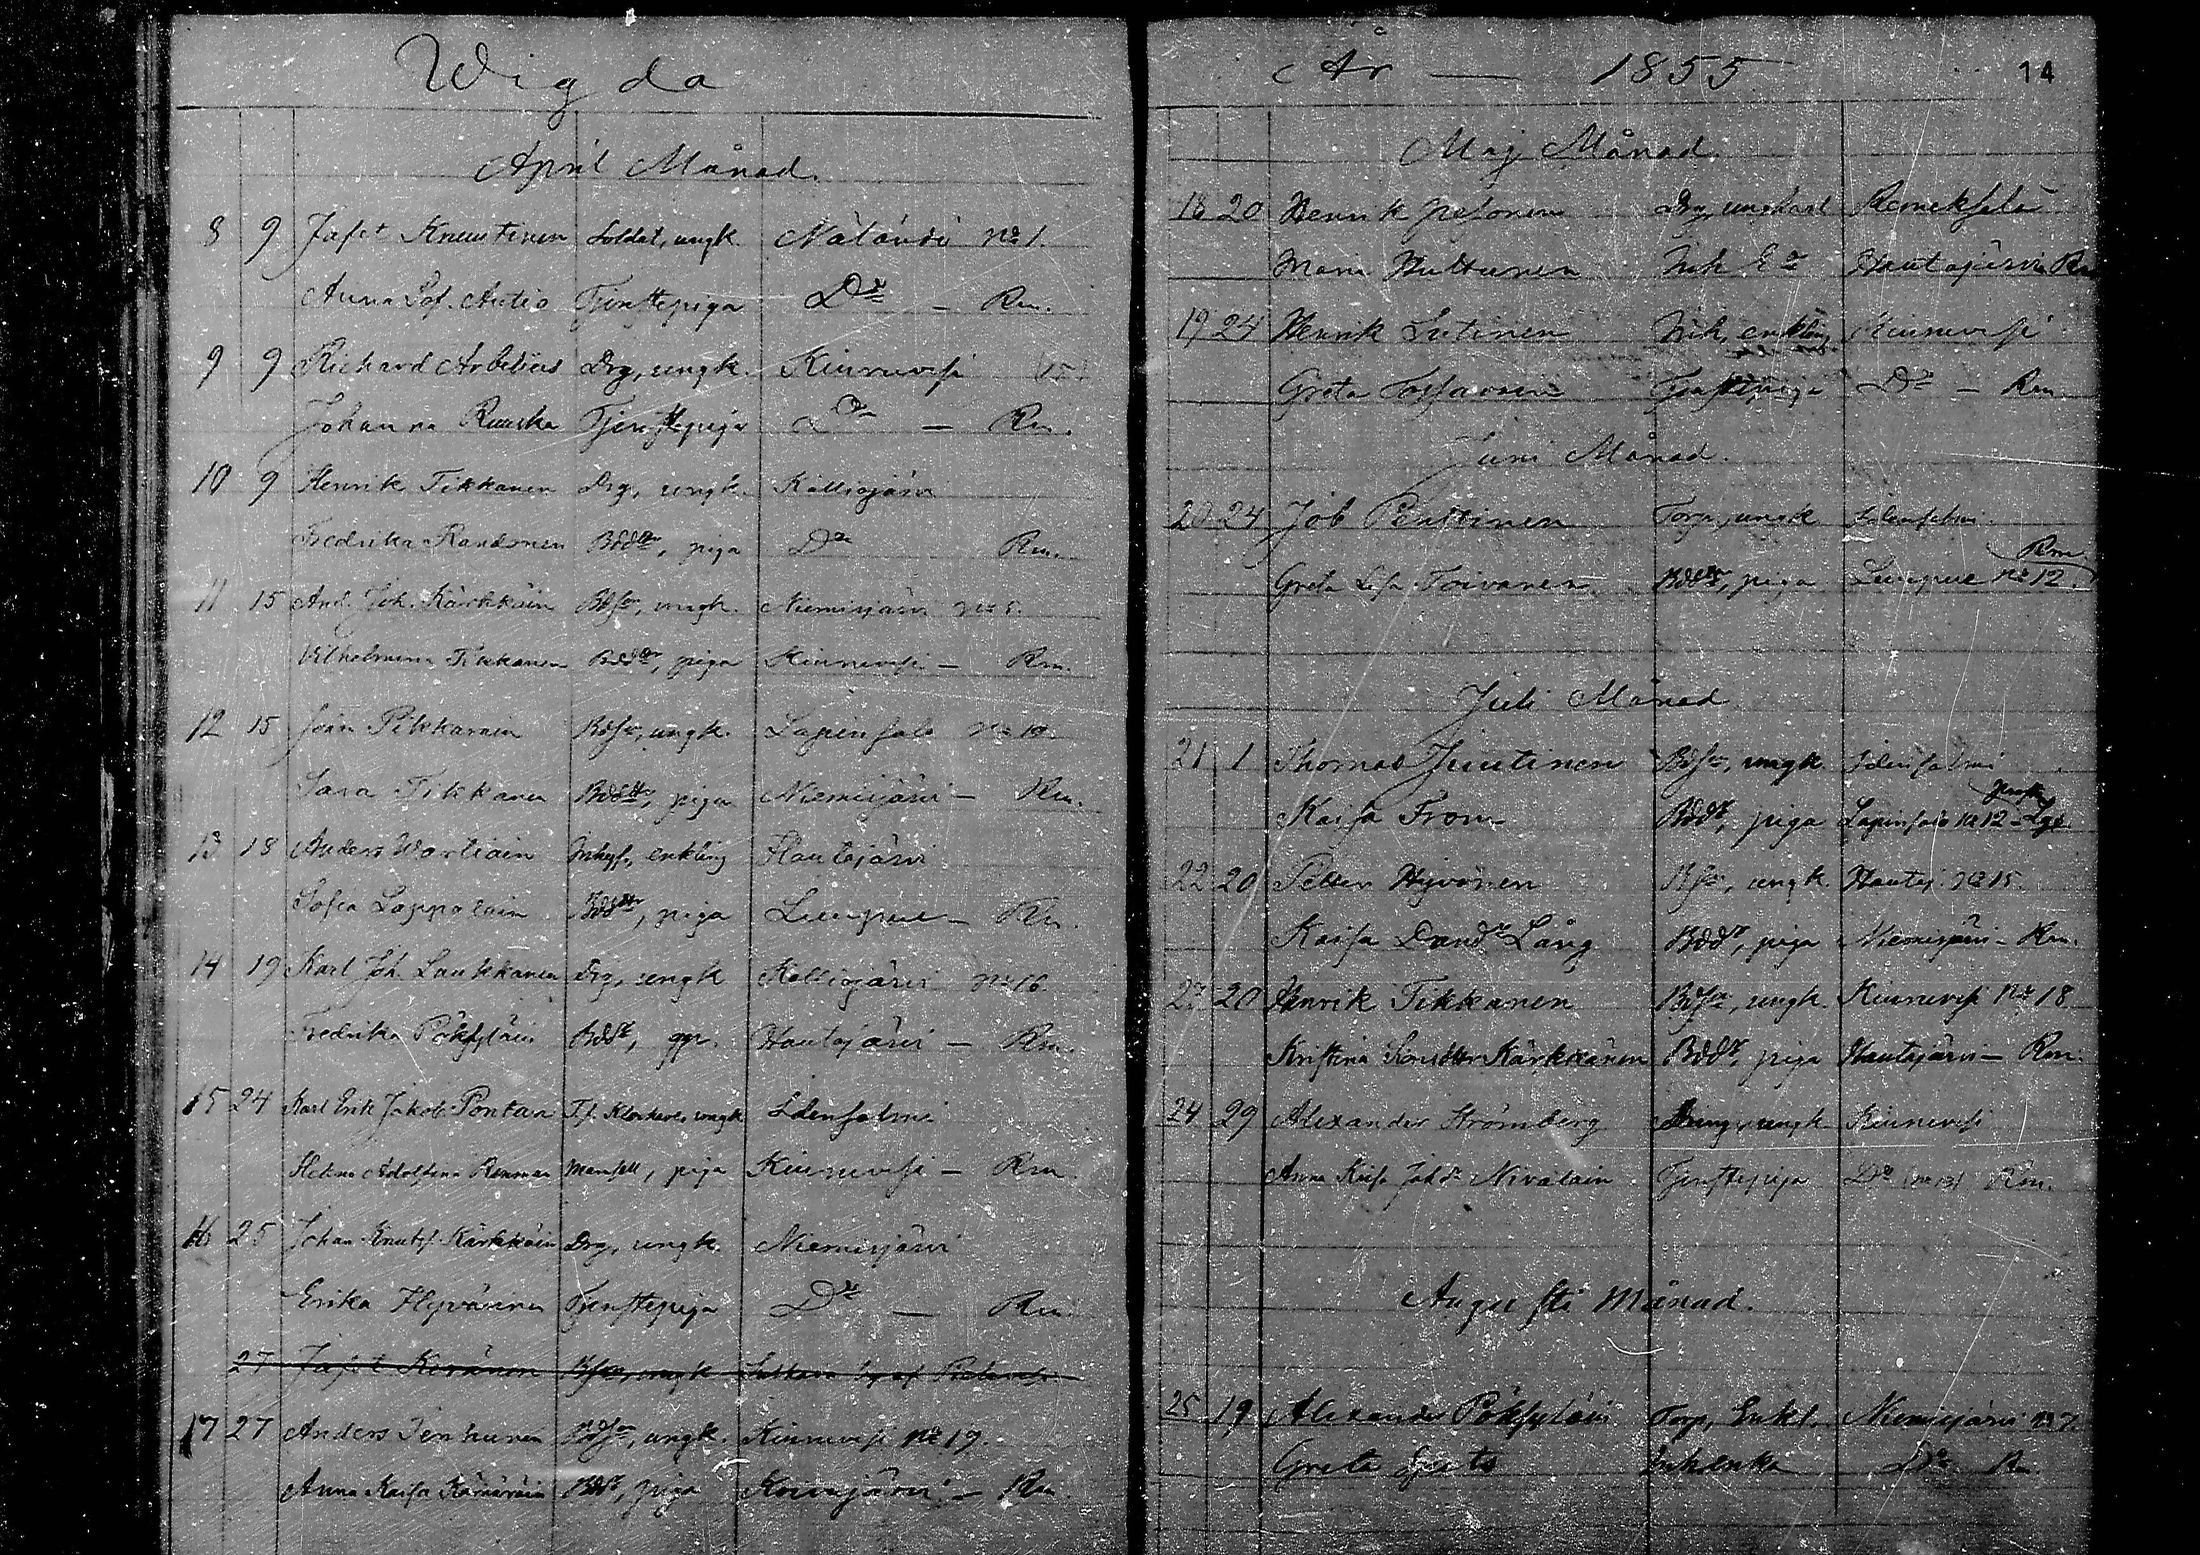 Wigda
April Månad.
8 9 Jafet Knuutinen Soldat, ungk. No 1.
Anna Sof. Autio Tjenstepiga Do — Rm.
9 9 Richard Arbelius Drg, ungk. Kiuruvesi
Johanna Ruuska Tjenstepiga Do — Rm.
10 9 Henrik Tikkanen Drg, ungk. Kalliojärvi
Fredrika Bddtr, piga Do Rm.
11 15 And. Joh. Kärkkäin Bdsn, ungk. Niemisjärvi
Vilhelmina Tikkanen Bddtr, piga Kiuruvesi — Rm.
12 15 Pikkarain Bdsn, ungk. Lapinsalo
Sara Tikkanen Bddtr, piga Niemisjärvi — Rm.
13 18 Anders Wartiain enkling Hautajärvi
Sofia Lappalain Bddtr, piga Luupue — Rm.
14 19 Karl Joh. Laukkanen Drg, ungk Kalliojärvi No 16.
Fredrika Pöksyläin Bddr, Hautajärvi — Rm.
15 24 Karl Erik Jakob Pontan T.f. ungk Idensalmi
Helena Adolfina piga Kiuruvesi — Rm.
16 25 Johan Knutsf Kärkkäin Drg, ungk. Niemisjärvi
Erika Hyvärinen Tjenstepiga Do — Rm.
27 Jafet Keränen Bdsn, ungk
17 27 Anders Tenhunen Bdsn, ungk. Kiuruvesi No 19.
Anna Kaisa Bddr, piga — Rm.
År — 1855 14
Maj Månad.
18 20 Henrik Drg, ungkarl Remeksela
Maria Hultunen Inh Hautajärvi Rm
19 24 Henrik Lutinen Inh, enkling Kiuruvesi
Greta Tossavain Tjenstepiga Do — Rm
Juni Månad.
20 24 Job Penttinen Torp, ungk Idensalmi
Rm
Greta Lisa Toivanen Bddtr, piga Luupue No 12.
Juli Månad
21 1 Thomas Juutinen Bdsn, ungk Idensalmi
Kaisa From Bddr, piga Lapinsalo No 12
22 20 Petter Hyvönen Bdsn, ungk. Hautaj. No 15.
Kaisa Dandr Lång Bddr, piga Niemisjärvi — Rm.
23 20 Henrik Tikkanen Bdsn, ungk. Kiuruvesi No 18
Kristina Kärkkäinen Bddr, piga Hautajärvi — Rm.
24 29 Alexander Strömberg ungk. Kiuruvesi
Anna Kaisa Johdr Nivalain Tjenstepiga Do Rm.
Augusti Månad.
25 19 Alexander Pöksyläin Torp, Enkl. Niemisjärvi No 7.
Greta Inhenka Do Rm.